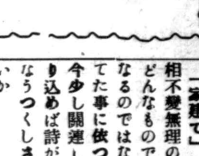 一家建て」
相不變無理の
どんなもので
なるのではな
てた事に依つ
今少し關連し
り込めば詩が
なうつくしさ
か